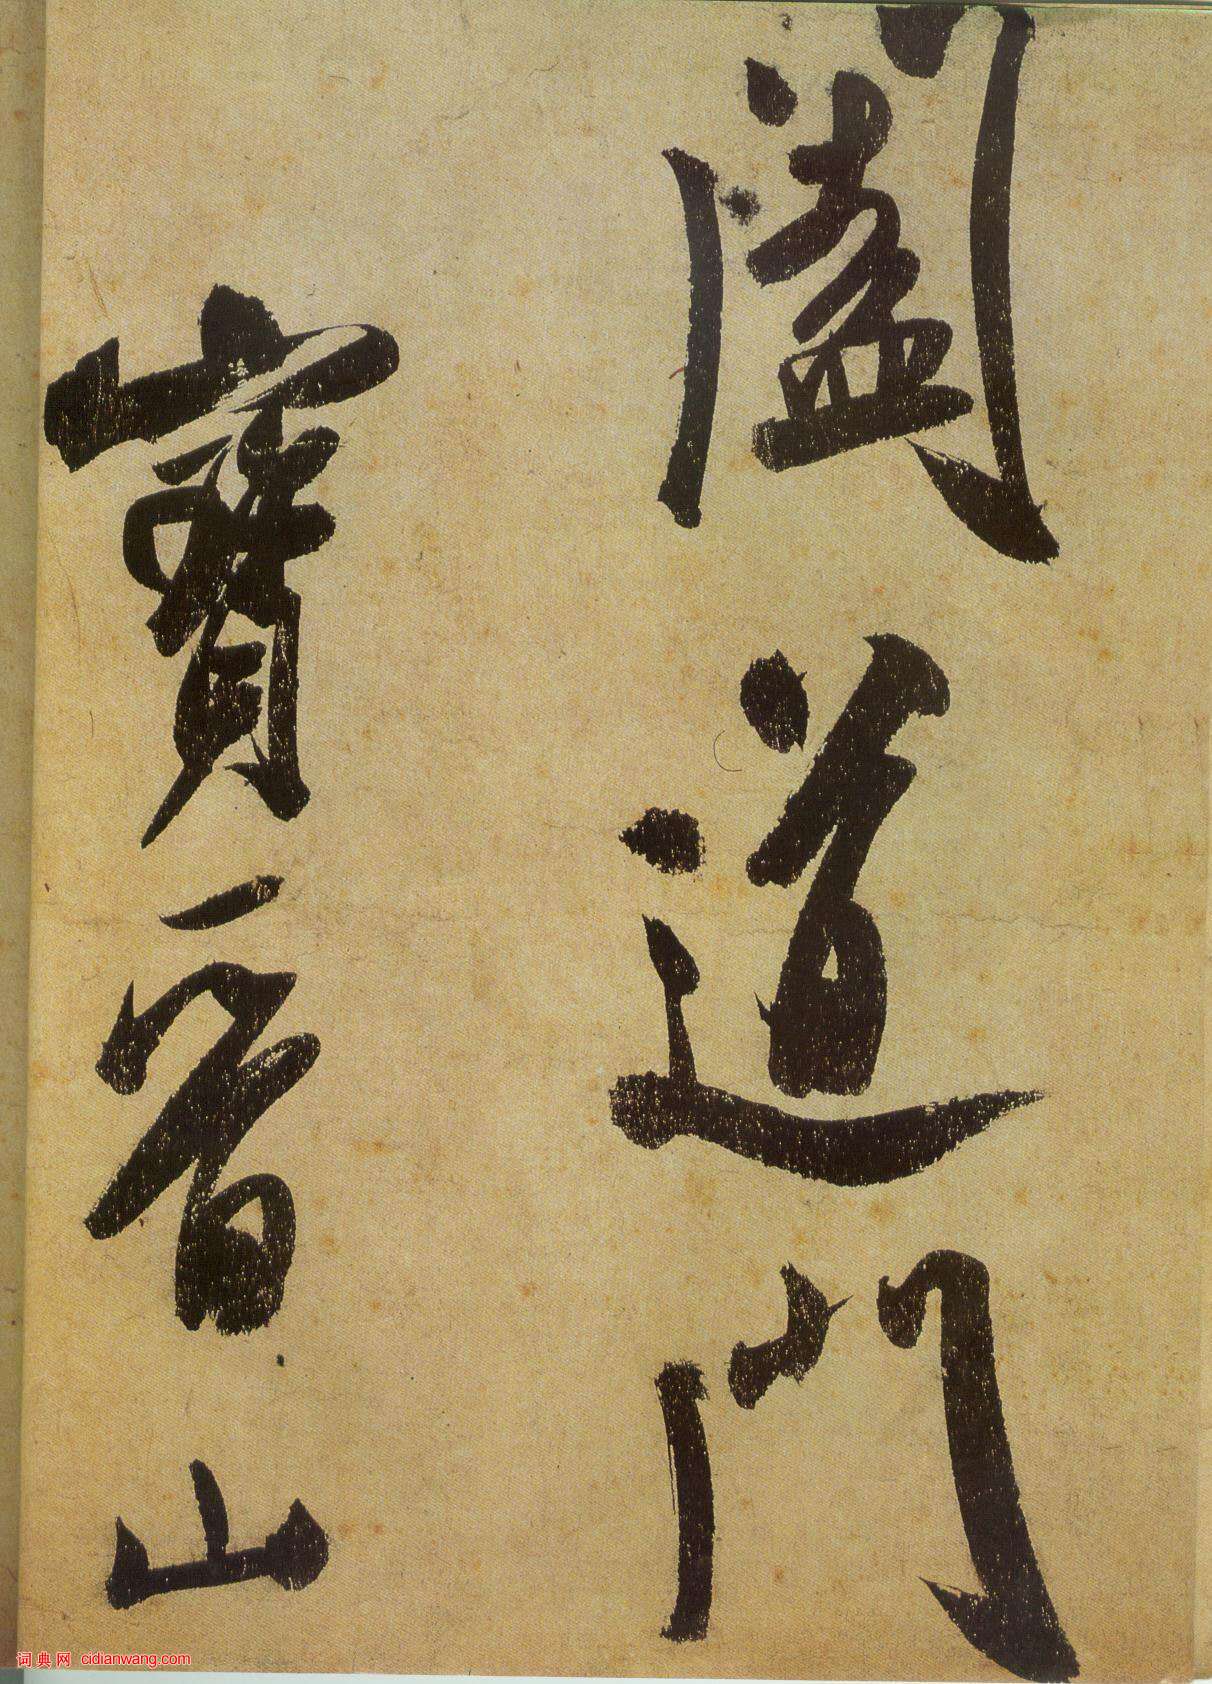 闔道門
寶晉山
词典网 cidianwang.com